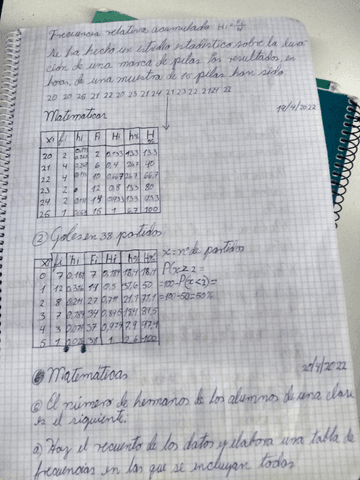 Frecuencia relativa acumulada Hi =
Se ha hecho un estudio estadístico sobre la dura-
ción de una marca de pilas. Los resultados, en
horas, de una muestra de 15 pilas han sido
20 20 26 21 22 20 23 21 24 21 23 22 21 22
19/4/2022
Matematicas
xi fi hi Fi Hi h% H%
20 2 2 0,133 13,3 13,3
21 4 6 0,4 26,7 40
22 4 10 0,667 26,7 66,7
23 2 12 0,8 13,3 80
24 2 14 0,933 13,3 93,3
26 1 15 1 6,7 100
② Goles en 38 partidos
x fi hi Fi Hi h% H%
0 7 0,184 7 0,184 18,4 18,4
1 12 19 0,5 31,6 50
2 8 0,211 27 0,711 21,1 71,1
3 7 0,184 34 18,4
4 3 37 0,974 7,9 97,4
5 1 38 1 2,6 100
x = nº de partidos
P(x ≥ 2 =
=100-P(x<2)=
=100-50=50%
Matemáticas
20/4/2022
El número de hermanos de los alumnos de una clase
es el siguiente.
a) Haz el recuento de los datos y elabora una tabla de
frecuencias en las que se incluyan todas